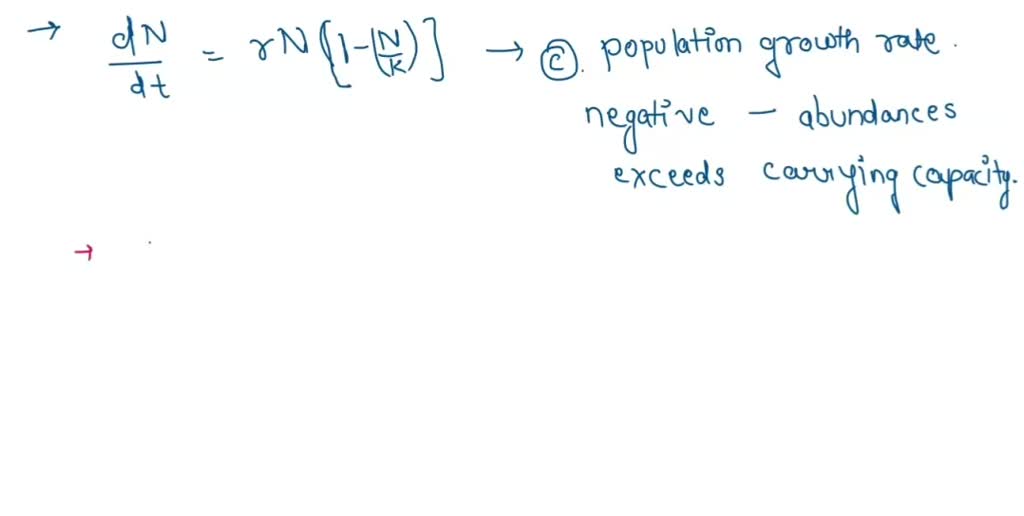 → dN/dt = rN[1-(N/K)] → ©. population growth rate.
negative — abundances
exceeds carrying capacity.
→